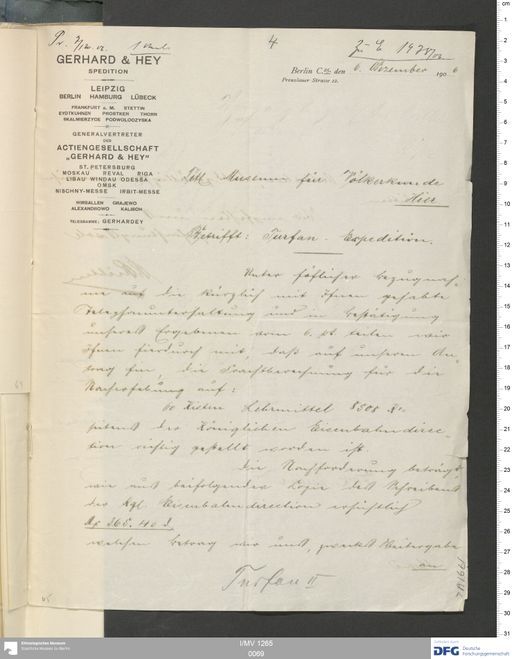 4
GERHARD & HEY
SPEDITION
LEIPZIG
BERLIN HAMBURG LÜBECK
FRANKFURT a. M. STETTIN
EYDTKUHNEN PROSTKEN THORN
SKALMIERZYCE PODWOLOCZYSKA
GENERALVERTRETER
DER
ACTIENGESELLSCHAFT
„GERHARD & HEY"
ST. PETERSBURG
MOSKAU REVAL RIGA
LIBAU WINDAU ODESSA
OMSK
NISCHNY-MESSE IRBIT-MESSE
WIRBALLEN GRAJEWO
ALEXANDROWO KALISCH
TELEGRAMME: GERHARDEY
Berlin C. den 6. Dezember 1906
Prenzlauer Strasse
Museum für Völkerkunde
Hier
Betrifft: Turfan-Expedition.
Unter höflicher Bezugnah-
me auf die kürzlich mit Ihnen gehabte
Telephonunterhaltung und in Bestätigung
unseres Ergebenen vom 6. teilen wir
Ihnen hierdurch mit, daß auf unseren An-
trag hin, die Frachtberechnung für die
Nacherhebung auf:
Kisten Lehrmittel 8508
seitens der Königlichen Eisenbahndirec-
tion richtig gestellt worden ist.
Die Nachforderung beträgt,
wie aus beifolgender Copie des Schreibens
der Kgl. Eisenbahndirection ersichtlich
welchen Betrag wir uns, zwecks Weitergabe
an
Turfan II
I/MV 1265
0069
Ethnologisches Museum
Staatliche Museen zu Berlin
DFG Deutsche
Forschungsgemeinschaft